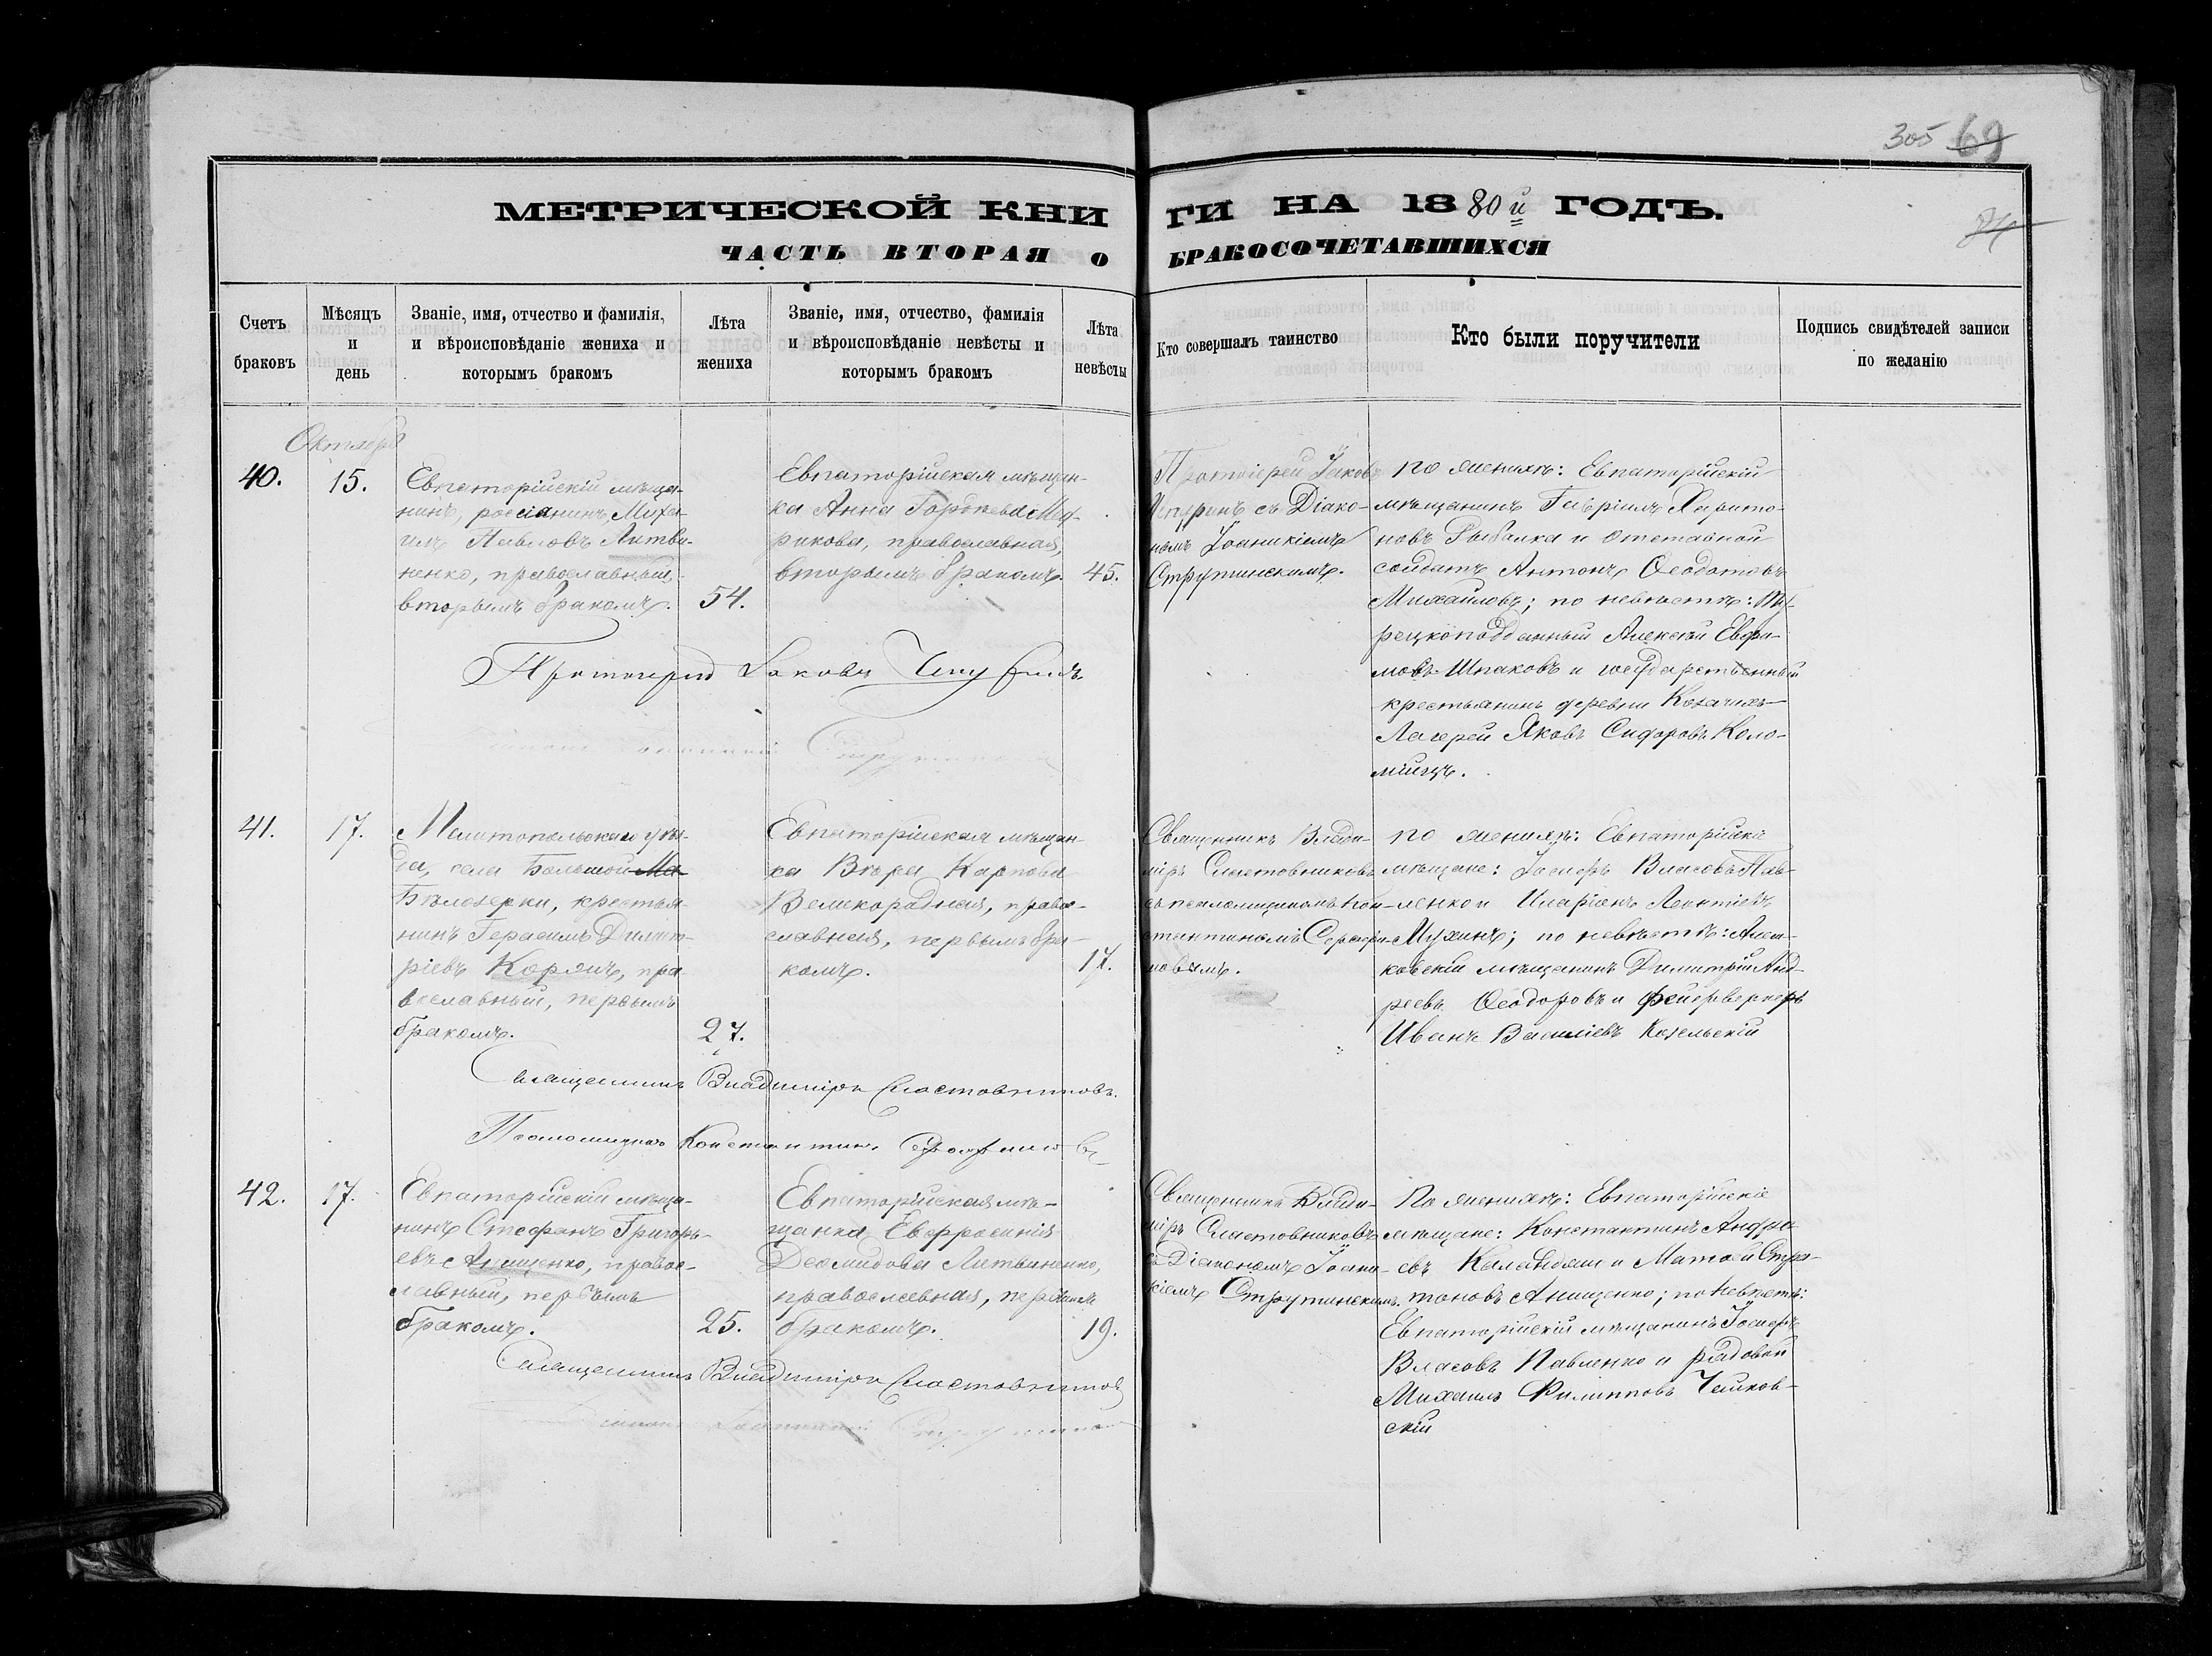 305 69
84
МЕТРИЧЕСКОЙ КНИГИ НА 1880й ГОДЪ.
ЧАСТЬ ВТОРАЯ О БРАКОСОЧЕТАВШИХСЯ
Счетъ браковъ
Мѣсяцъ и день
Званіе, имя, отчество и фамилія,
и вѣроисповѣданіе жениха и
которымъ бракомъ
Лѣта жениха
Званіе, имя, отчество, фамилія
и вѣроисповѣданіе невѣсты и
которымъ бракомъ
Лѣта невѣсты
Кто совершалъ таинство
Кто были поручители
Подпись свидѣтелей записи
по желанію
Октября
40.
15.
Евпаторійскій мѣща-
нинъ, россіянинъ Миха-
илъ Павловъ Литви-
ненко, православный
вторымъ бракомъ.
54.
Евпаторійская мѣщан-
ка Анна Гордѣева
рикова, православная,
вторымъ бракомъ.
45.
Протоіерей Іаковъ
Чепуринъ съ Діако-
номъ Іоаникіемъ
Струтинскимъ.
по женихѣ: Евпаторійскій
мѣщанинъ Гавріилъ Харито-
новъ Рыбалка и отставной
солдатъ Антонъ Ѳеодотовъ
Михайловъ; по невѣстѣ: Ту-
рецкоподданный Алексѣй Евфи-
мовъ Шпаковъ и государственный
крестьянинъ деревни Козачихъ
Лагерей Яковъ Сидоровъ Коло-
міецъ.
Протоіерей Іаковъ Чепуринъ
Струтинскій
41.
17.
Мелитопольскаго уѣз-
да, села Большой Ма-
Бѣлозерки, крестья-
нинъ Герасимъ Димит-
ріевъ Корякъ, пра-
вославный, первымъ
бракомъ.
27.
Евпаторійская мѣщан-
ка Вѣра Карпова
Великородная, право-
славная, первымъ бра-
комъ.
17.
Священникъ Влади-
міръ Сластовниковъ
съ псаломщикомъ Кон-
стантиномъ Серафи-
мовымъ.
по женихѣ: Евпаторійскіе
мѣщане: Іосифъ Власовъ Пав-
ленко и Иларіонъ Леонтіевъ
Мухинъ; по невѣстѣ: Алеш-
ковскій мѣщанинъ Димитрій Анд-
реевъ Ѳеодоровъ и фейерверкеръ
Иванъ Василіевъ Козельскій
Священникъ Владиміръ Сластовниковъ.
Псаломщикъ Константинъ Серафимовъ
42.
17.
Евпаторійскій мѣща-
нинъ Стефанъ Григорь-
евъ Анищенко, право-
славный, первымъ
бракомъ.
25.
Евпаторійская мѣ-
щанка Евфросинія
Деомидова Литвиненко,
православная, первымъ
бракомъ.
19.
Священникъ Влади-
міръ Сластовниковъ
съ Діакономъ Іоани-
кіемъ Струтинскимъ.
По женихѣ: Евпаторійскіе
мѣщане: Константинъ Андре-
евъ и Матѳей Стра-
тоновъ Анищенко; по невѣстѣ:
Евпаторійскій мѣщанинъ Іосифъ
Власовъ Павленко и рядовой
Михаилъ Филипповъ Чайков-
скій
Священникъ Владиміръ Сластовниковъ
Діаконъ Іоаникій Струтинскій